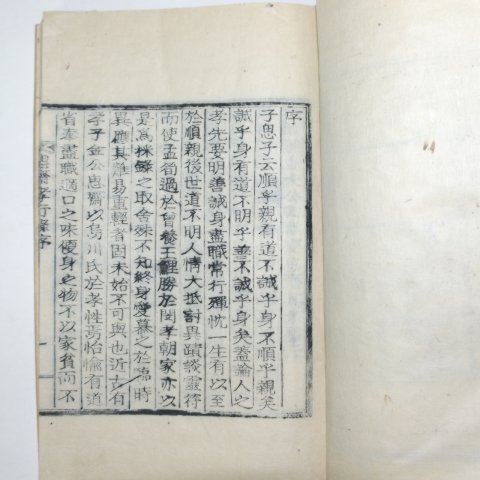 序
子思子云順乎親有道不誠乎身不順乎親矣
誠乎身有道不明乎善不誠乎身矣蓋論人之
孝先要明善誠身盡職常行殫忱一生有以至
於順親後世道不明人情大抵討異蹟談靈符
而使孟荀過於曾養王鯉勝於閔孝朝家亦以
是爲採錄之取舍殊不知終身愛慕之於臨時
異應其難易重輕者固未始不可與也近古有
孝子金公思齋以烏川氏於孝性焉怡愉有道
省奉盡職適口之味便身之物不以家貧而不
思齋孝行錄序